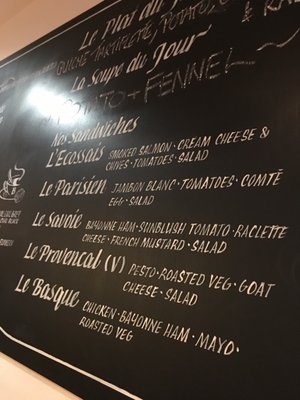 Le Plat du
QUICHE TARTIFLETTE, POTATO
La Soupe du Jour
TOMATO + FENNEL
Nos Sandwiches
L'Ecossais SMOKED SALMON · CREAM CHEESE &
CHIVES · TOMATOES · SALAD
Le Parisien JAMBON BLANC · TOMATOES · COMTÉ
EGG · SALAD
Le Savoie BAYONNE HAM · SUNBLUSH TOMATO · RACLETTE
CHEESE · FRENCH MUSTARD · SALAD
Le Provencal (V) PESTO · ROASTED VEG · GOAT
CHEESE · SALAD
Le Basque CHICKEN · BAYONNE HAM · MAYO ·
ROASTED VEG